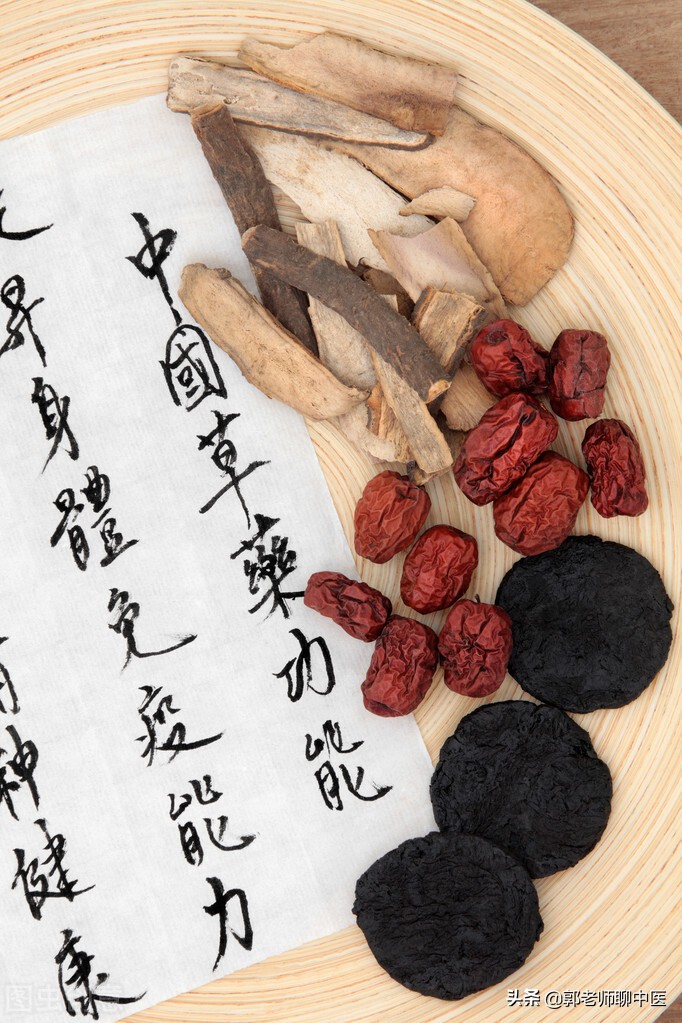 中國草藥功能
昇身體免疫能力
神健康
头条 @郭老师聊中医